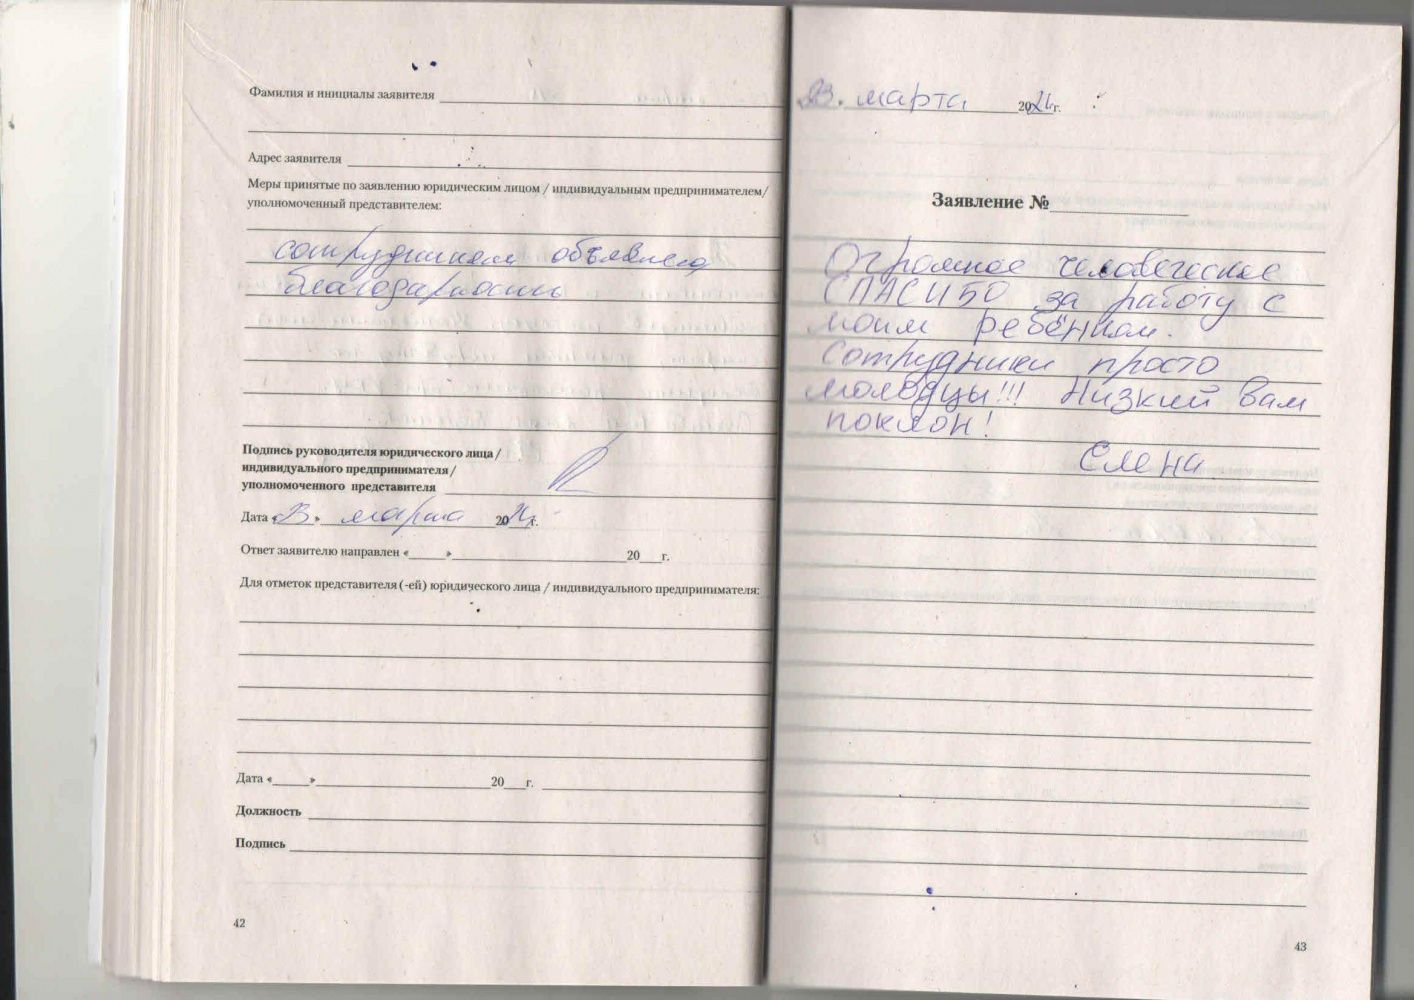 Фамилия и инициалы заявителя
Адрес заявителя
Меры принятые по заявлению юридическим лицом / индивидуальным предпринимателем/
уполномоченный представителем:
сотрудникам объявлена
благодарность
Подпись руководителя юридического лица /
индивидуального предпринимателя /
уполномоченного представителя
Дата «23» марта 20 г.
Ответ заявителю направлен «____» 20___г.
Для отметок представителя (-ей) юридического лица / индивидуального предпринимателя:
Дата «____» 20___г.
Должность
Подпись
42
23. марта 20 г.
Заявление №
Огромное человеческое
СПАСИБО за работу с
моим ребёнком.
Сотрудники просто
молодцы!!! Низкий вам
поклон!
Елена
43